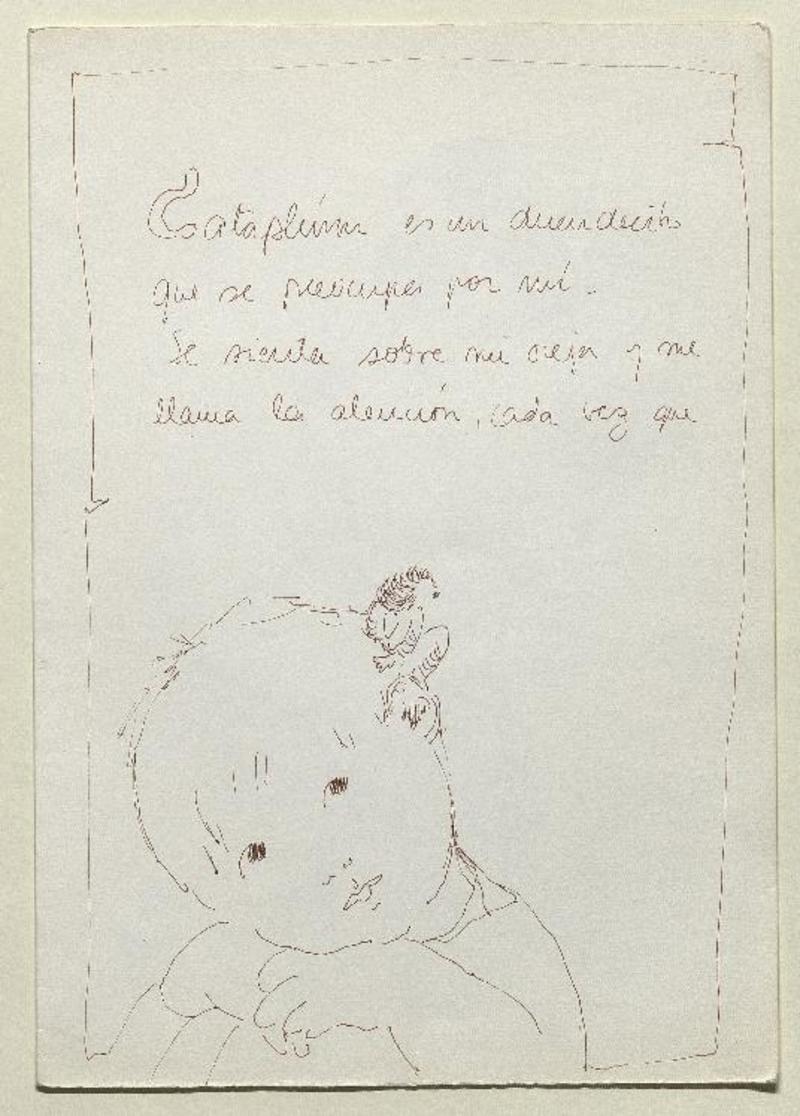 Cataplúm es un duendecito
que se preocupa por mí.
Se sienta sobre mi oreja y me
llama la atención, cada vez que